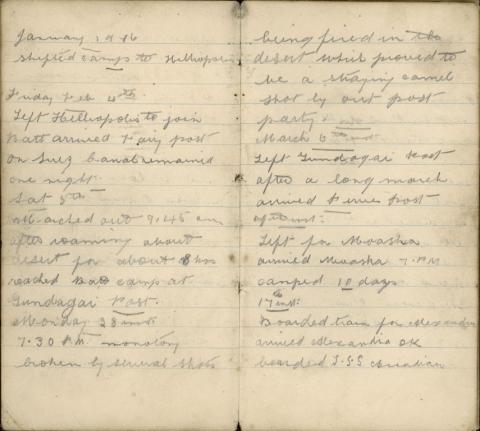 January 1916
shifted camps to Heliopolis
Friday Feb 4th
Left Helliopolis to join
Batt arrived Ferry post
on Suez Canal remained
one night.
Sat 5th
Marched out 9.45 am
after roaming about
desert for about 8 hrs
reached Batt camp at
Gundagai Post.
Monday 28 inst
7.30 P.M. monotony
broken by several shots
being fired in the
desert which proved to
be a straying camel
shot by out post
party
March 6
Left Gundagai Post
after a long march
arrived Ferry Post
inst:
Left for Moasha
arrived Moasha 7. PM
camped 10 days
17th inst:
Boarded train for Alexandria
arrived Alexandria OK
boarded T.S.S